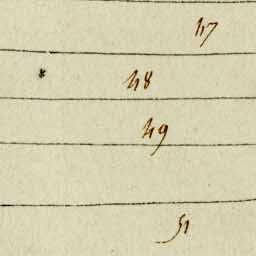 47
* 48
49
51